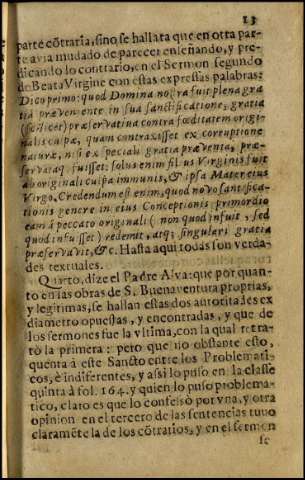 13
parte cõtraria, sino se hallara que en otra par-
te avia mudado de parecer enseñando, y pre-
dicando lo contrario, en el Sermon segundo
de Beata Virgine con estas expressas palabras:
Dico primo: quod Domina nostra fuit plena gra
tia præveniente in sua sanctificatione, gratia
(scilicet) præservativa contra fœditatem origi-
nalis culpæ, quam contraxisset ex corruptione
naturæ, nisi ex speciali gratia præventa, præ-
servataq; fuisset: solus enim filius Virginis fuit
ab originali culpa immunis, & ipsa Mater eius
Virgo. Credendum est enim, quod novo sanctifica-
tionis genere in eius Conceptionis primordio
eam à peccato originali (non quod infuit, sed
quod infuisset) redemit, atq; singulari gratia
præservavit, &c. Hasta aqui todas son verda-
des textuales.
Quarto, dize el Padre Alva: que por quan-
to en las obras de S. Buenaventura proprias,
y legitimas, se hallan estas dos autoridades ex
diametro opuestas, y encontradas, y que de
los sermones fue la vltima, con la qual retra-
tò la primera: pero que no obstante esto,
quenta à este Sancto entre los Problemati-
cos, è indiferentes, y assi lo puso en la classe
quinta à fol. 164. y quien lo puso problema-
tico, claro es que lo confessò por vna, y otra
opinion en el tercero de las sentencias tuvo
claramẽte la de los cõtrarios, y en el sermon
se